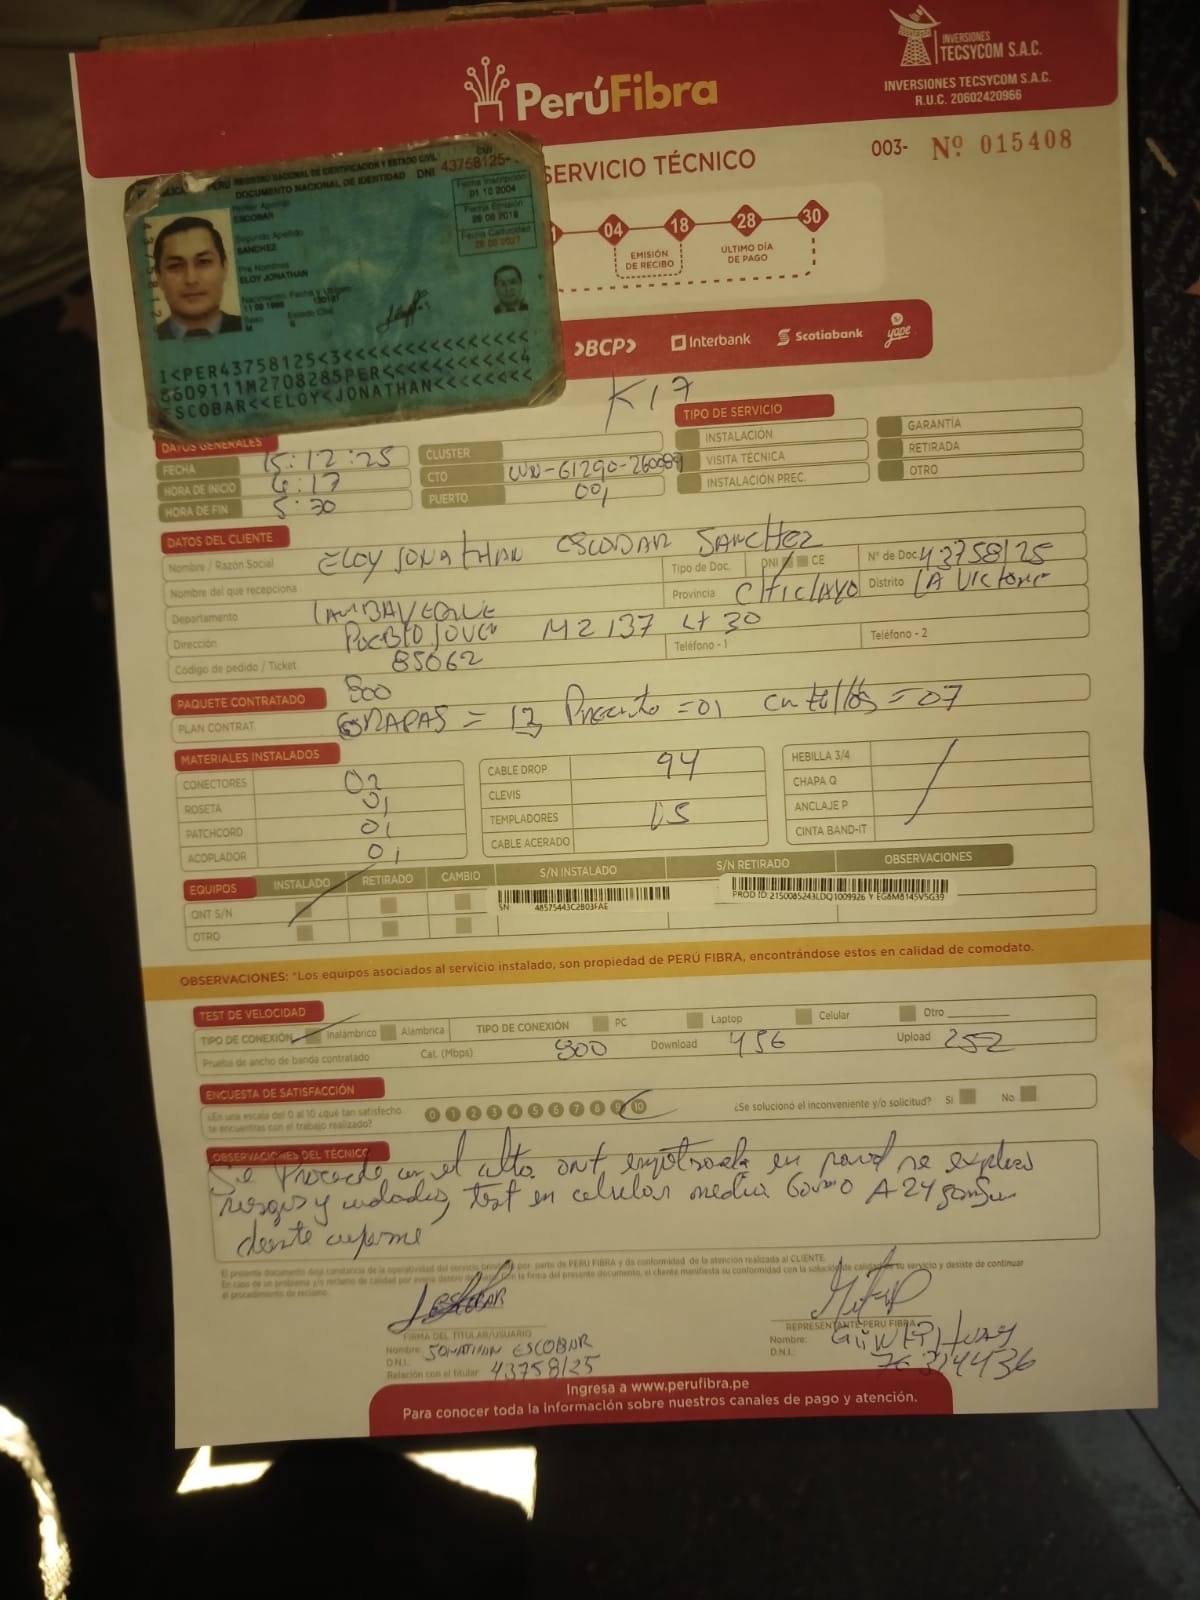 PerúFibra
INVERSIONES
TECSYCOM S.A.C.
INVERSIONES TECSYCOM S.A.C.
R.U.C. 20602420966
SERVICIO TÉCNICO
003- Nº 015408
PERÚ REGISTRO NACIONAL DE IDENTIFICACIÓN Y ESTADO CIVIL
CUI
DOCUMENTO NACIONAL DE IDENTIDAD DNI 43758125-
Primer Apellido
ESCOBAR
Segundo Apellido
SANCHEZ
Pre Nombres
ELOY JONATHAN
Fecha Inscripción
01 10 2004
Fecha Emisión
Fecha Caducidad
1<PER43758125<3<<<<<<<<<<<<<<<
8609111M2708285PER<<<<<<<<<<<4
ESCOBAR<<ELOY<JONATHAN<<<<<<<<
04 18 28 30
EMISIÓN DE RECIBO
ÚLTIMO DÍA DE PAGO
>BCP> Interbank Scotiabank yape
K17
DATOS GENERALES
FECHA 15:12:25
HORA DE INICIO 4:17
HORA DE FIN 5:30
CLUSTER
CTO
PUERTO 001
TIPO DE SERVICIO
INSTALACIÓN
VISITA TÉCNICA
INSTALACIÓN PREC.
GARANTÍA
RETIRADA
OTRO
DATOS DEL CLIENTE
Nombre / Razón Social ELOY JONATHAN ESCOBAR SANCHEZ
Tipo de Doc. DNI CE Nº de Doc. 43758125
Nombre del que recepciona
Provincia CHICLAYO Distrito LA VICTORIA
Departamento LAMBAYEQUE
Dirección PUEBLO JOVEN MZ 137 LT 30
Teléfono - 1 Teléfono - 2
Código de pedido / Ticket 85062
PAQUETE CONTRATADO 800
PLAN CONTRAT. GRAPAS = 12 Precinto = 01 = 07
MATERIALES INSTALADOS
CONECTORES 02
ROSETA 01
PATCHCORD 01
ACOPLADOR 01
CABLE DROP 94
CLEVIS
TEMPLADORES
CABLE ACERADO
HEBILLA 3/4
CHAPA Q
ANCLAJE P
CINTA BAND-IT
EQUIPOS INSTALADO RETIRADO CAMBIO S/N INSTALADO S/N RETIRADO OBSERVACIONES
ONT S/N
SN: 48575443C2B03FAE
PROD ID: 2150085243LDQ1009926 Y EG8M8145V5G39
OTRO
OBSERVACIONES: *Los equipos asociados al servicio instalado, son propiedad de PERÚ FIBRA, encontrándose estos en calidad de comodato.
TEST DE VELOCIDAD
TIPO DE CONEXIÓN Inalámbrico Alámbrica TIPO DE CONEXIÓN PC Laptop Celular Otro
Prueba de ancho de banda contratado Cat. (Mbps) 800 Download 456 Upload 252
ENCUESTA DE SATISFACCIÓN
¿En una escala del 0 al 10 ¿qué tan satisfecho
te encuentras con el trabajo realizado?
0 1 2 3 4 5 6 7 8 9 10
¿Se solucionó el inconveniente y/o solicitud? Si No
OBSERVACIONES DEL TÉCNICO
Se Procede con el alta ont empotrada en pared se explica
riesgos y cuidados, test en celular media A 24
cliente conforme
El presente documento deja constancia de la operatividad del servicio por parte de PERÚ FIBRA y da conformidad de la atención realizada al CLIENTE.
la firma del presente documento, el cliente manifiesta su conformidad con la solución de calidad de su servicio y desiste de continuar
el procedimiento de reclamo.
FIRMA DEL TITULAR/USUARIO
Nombre: JONATHAN ESCOBAR
D.N.I.: 43758125
Relación con el titular:
REPRESENTANTE PERÚ FIBRA
Nombre:
D.N.I.:
Ingresa a www.perufibra.pe
Para conocer toda la información sobre nuestros canales de pago y atención.